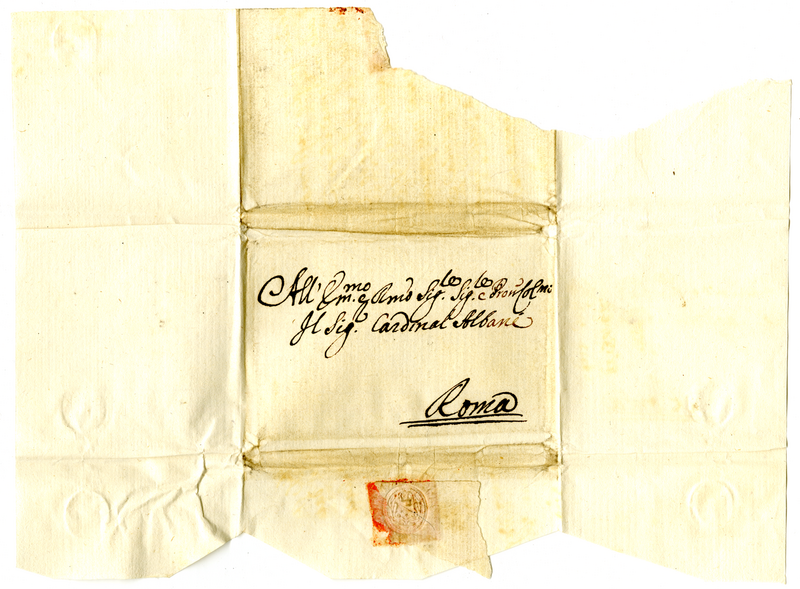 All' Em.mo e Rmo Sig.re Sig.re e Pron Col.mo
Il Sig.r Cardinal Albani
Roma